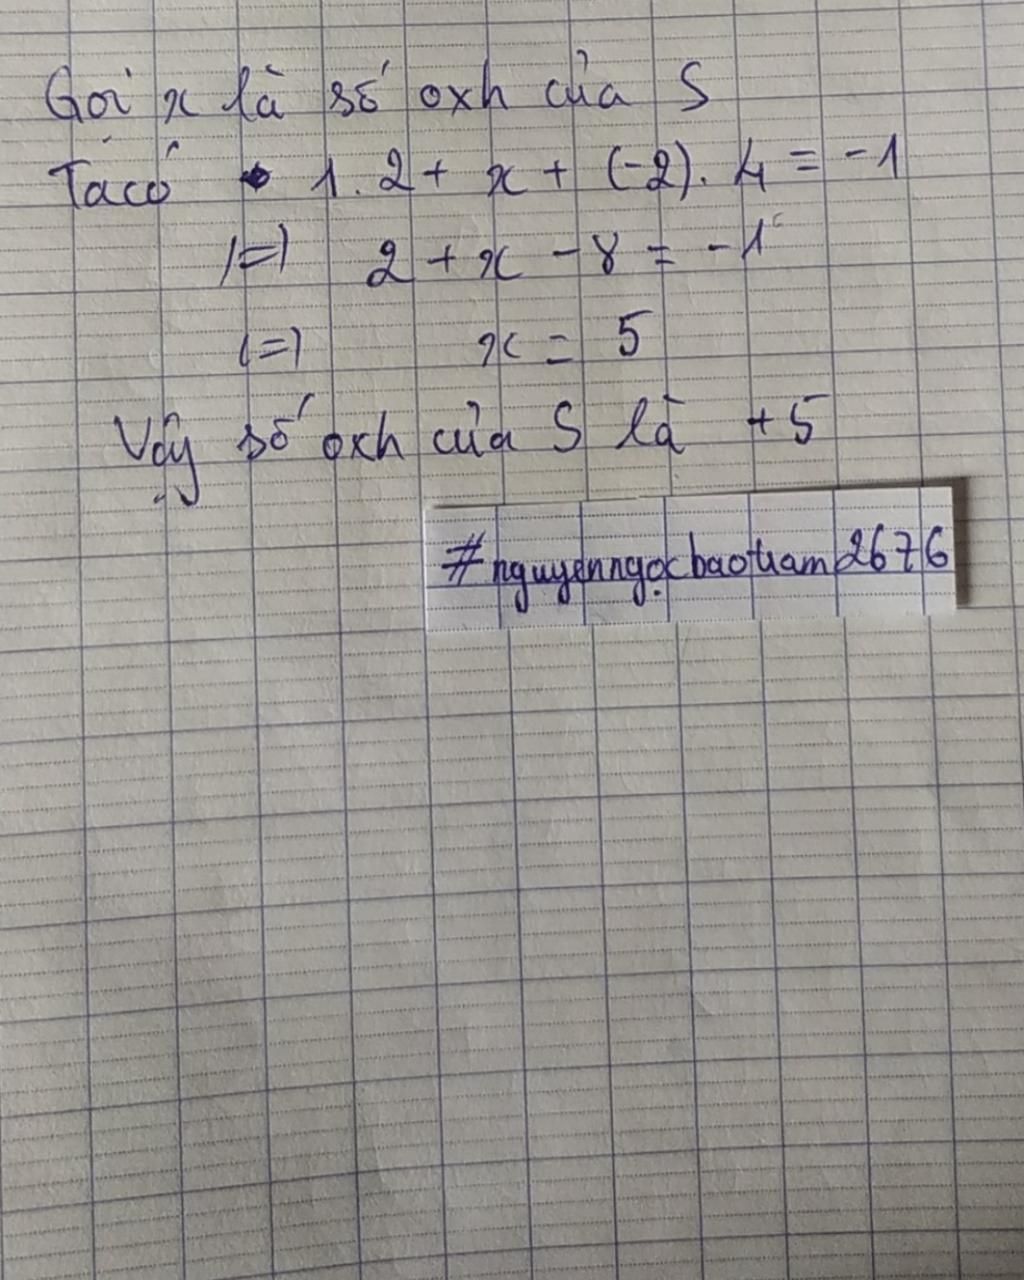 Gọi x là số oxh của S
Ta có 1.2 + x + (-2).4 = -1
(=) 2 + x - 8 = -1
(=) x = 5
Vậy số oxh của S là +5
#nguyenngọcbaotram2676